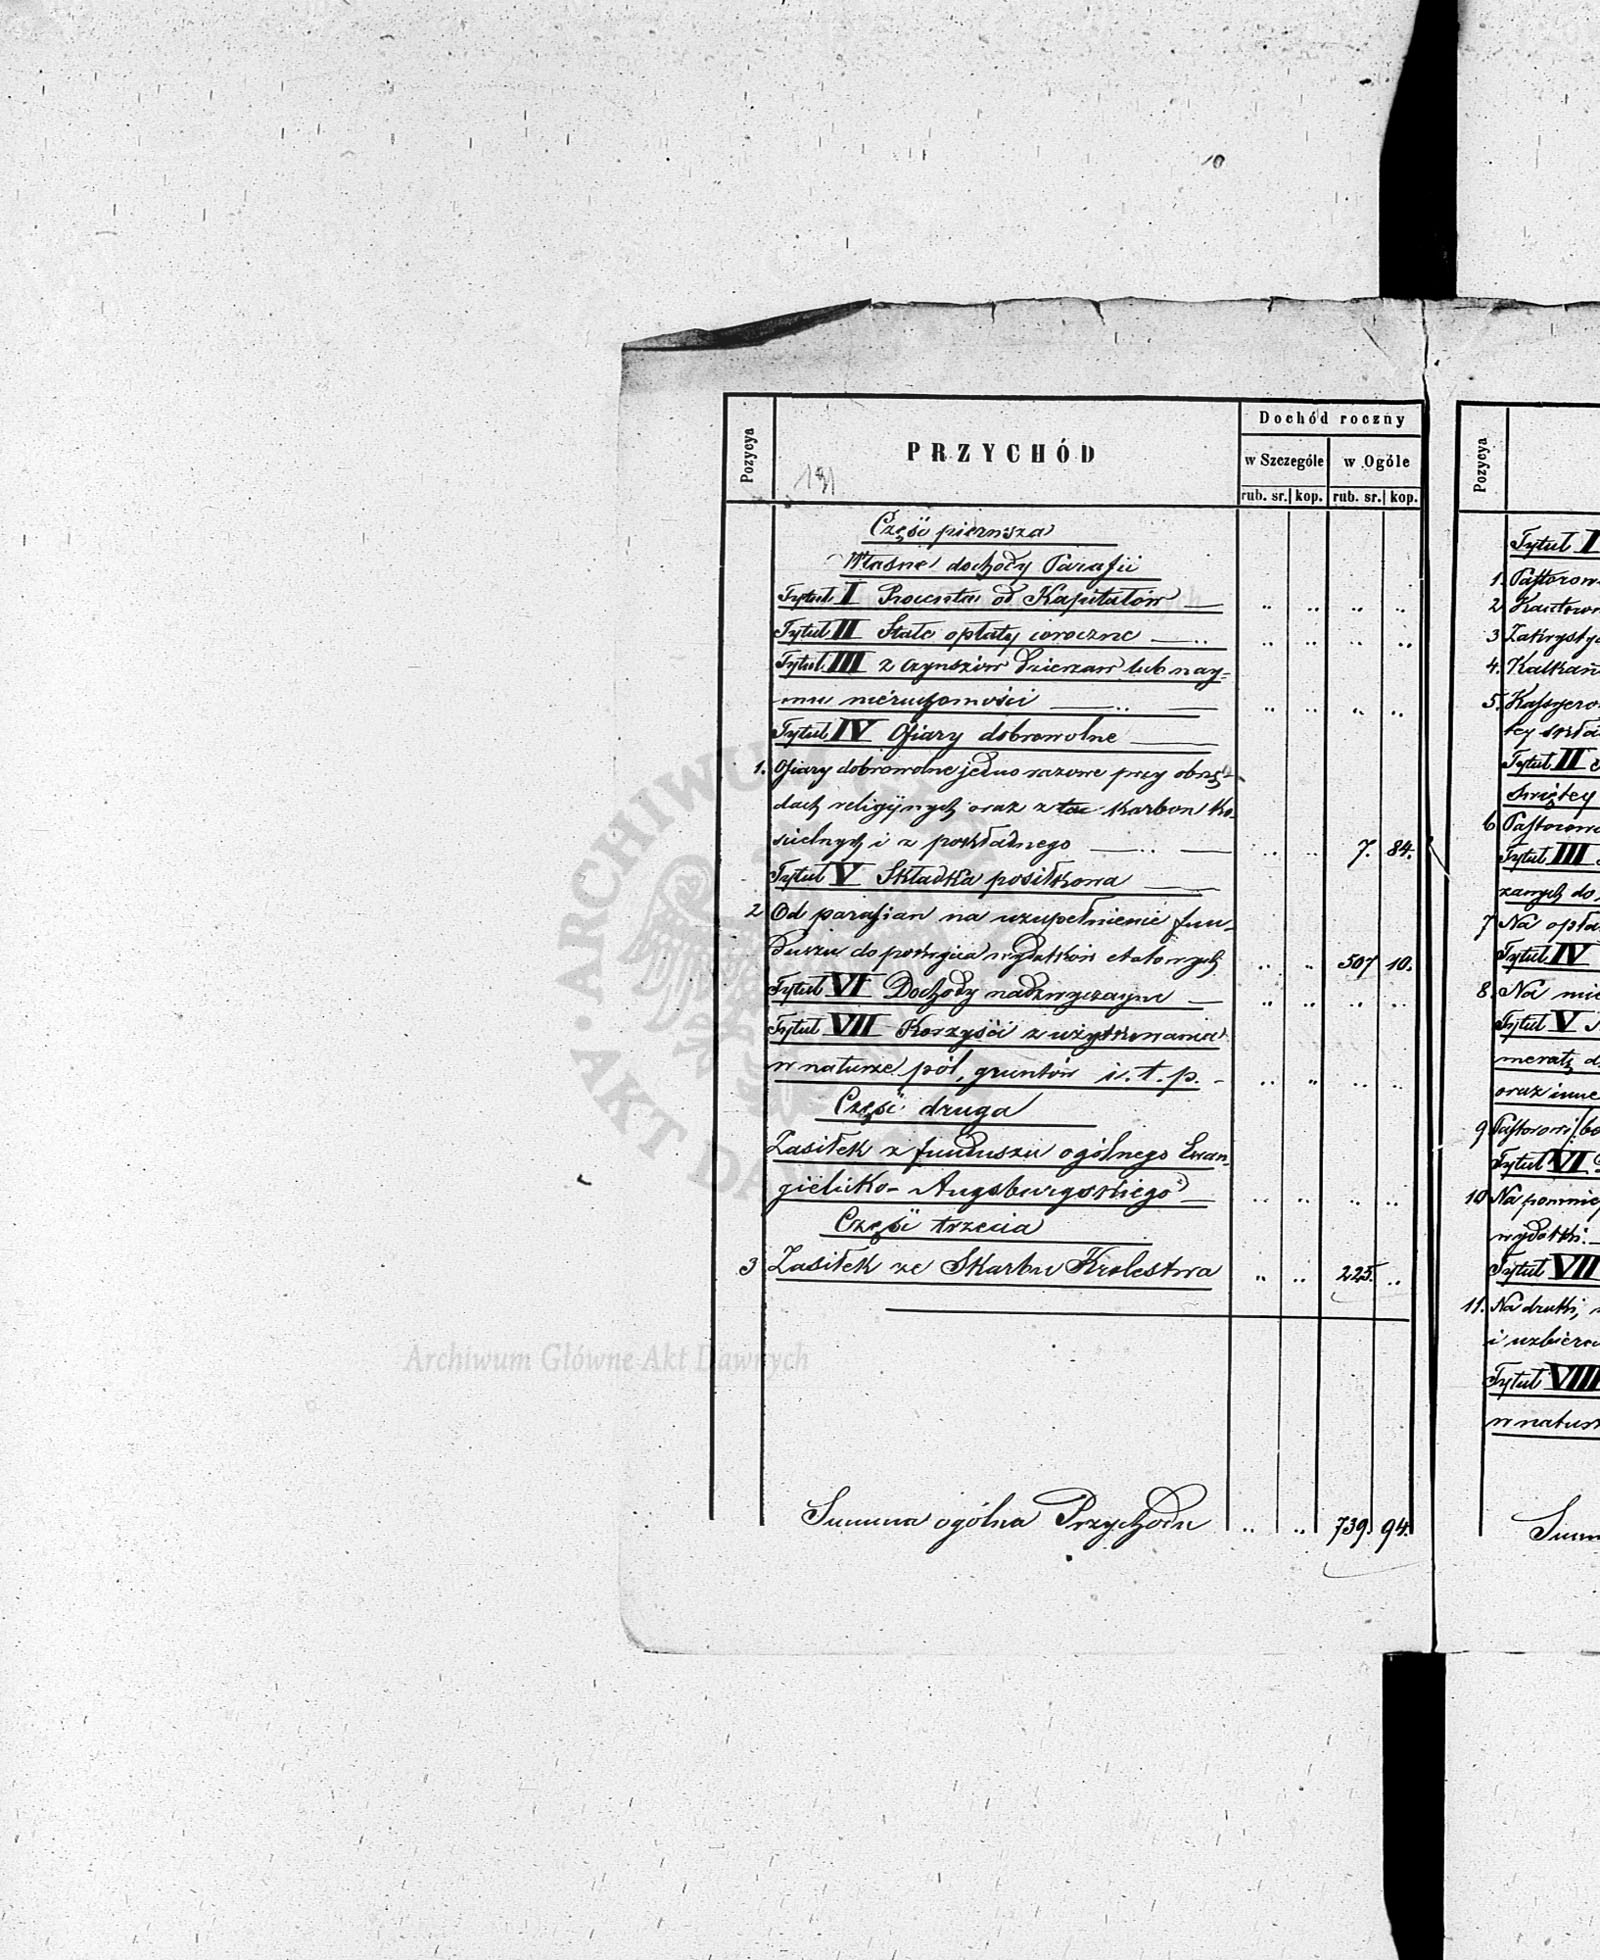 10
Pozycya
PRZYCHÓD
191
Dochód roczny
w Szczególe w Ogóle
rub. sr. kop. rub. sr. kop.
Część pierwsza
Własne dochody Parafii
Tytuł I Procenta od Kapitałów — .. .. .. ..
Tytuł II Stałe opłaty coroczne — .. .. .. .. ..
Tytuł III z czynszów dzierżaw lub nay=
mu nieruchomości — .. — .. .. .. ..
Tytuł IV Ofiary dobrowolne —
1. Ofiary dobrowolne jedno razowe przy obrzę=
dach religijnych oraz z karbon Ko-
ścielnych i z pokładnego — .. — .. .. 7. 84.
Tytuł V Składka posiłkowa —
2 Od parafian na uzupełnienie fun-
duszu do pokrycia wydatków etatowych .. .. 507 10.
Tytuł VI Dochody nadzwyczayne — .. .. .. ..
Tytuł VII Korzyści z użytkowania
w naturze pól, gruntów i. t. p. - .. .. .. ..
Część druga
Zasiłek z funduszu ogólnego Ewan-
gielicko-Augsburgskiego — .. .. .. ..
Część trzecia
3 Zasiłek ze Skarbu Krolestwa .. .. 225. ..
Summa ogólna Przychodu .. .. 739. 94.
Pozycya
Tytuł I
1. Pastorow
2 Kantorow
3 Zakrysty
4. Kalkan
5. Kassyero
Tytuł II
6 Pastorow
Tytuł III
zanych do
7 Na opła
Tytuł IV
8. Na mie
Tytuł V
oraz inne
9 Pastorowi
Tytuł VI
10 Na pomnie
wydatki. —
Tytuł VII
11. Na druki,
i uzbiera
Tytuł VIII
w natur
Summ
ARCHIWUM GŁÓWNE AKT DAWNYCH
Archiwum Główne Akt Dawnych